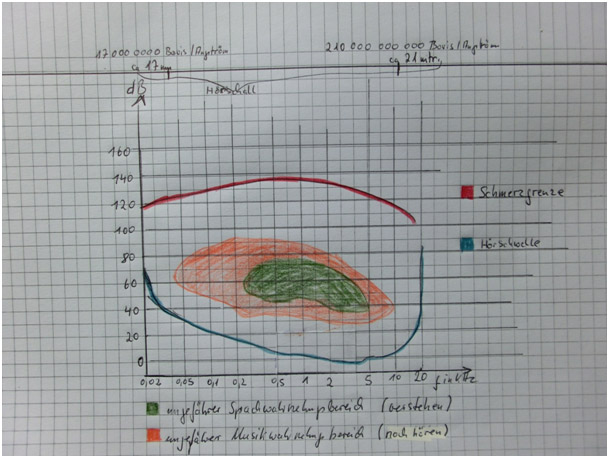 17 000 0000 Bovis/Angström
210 000 000 000 Bovis/Angström
ca 17 mm
ca 21 mtr.
dB
Hörschall
160
140
120
100
80
60
40
20
0
0,02 0,05 0,1 0,2 0,5 1 2 5 10 20 f in kHz
Schmerzgrenze
Hörschwelle
ungefährer Sprachwahrnehmpbereich (verstehen)
ungefährer Musikwahrnehmpbereich (noch hören)